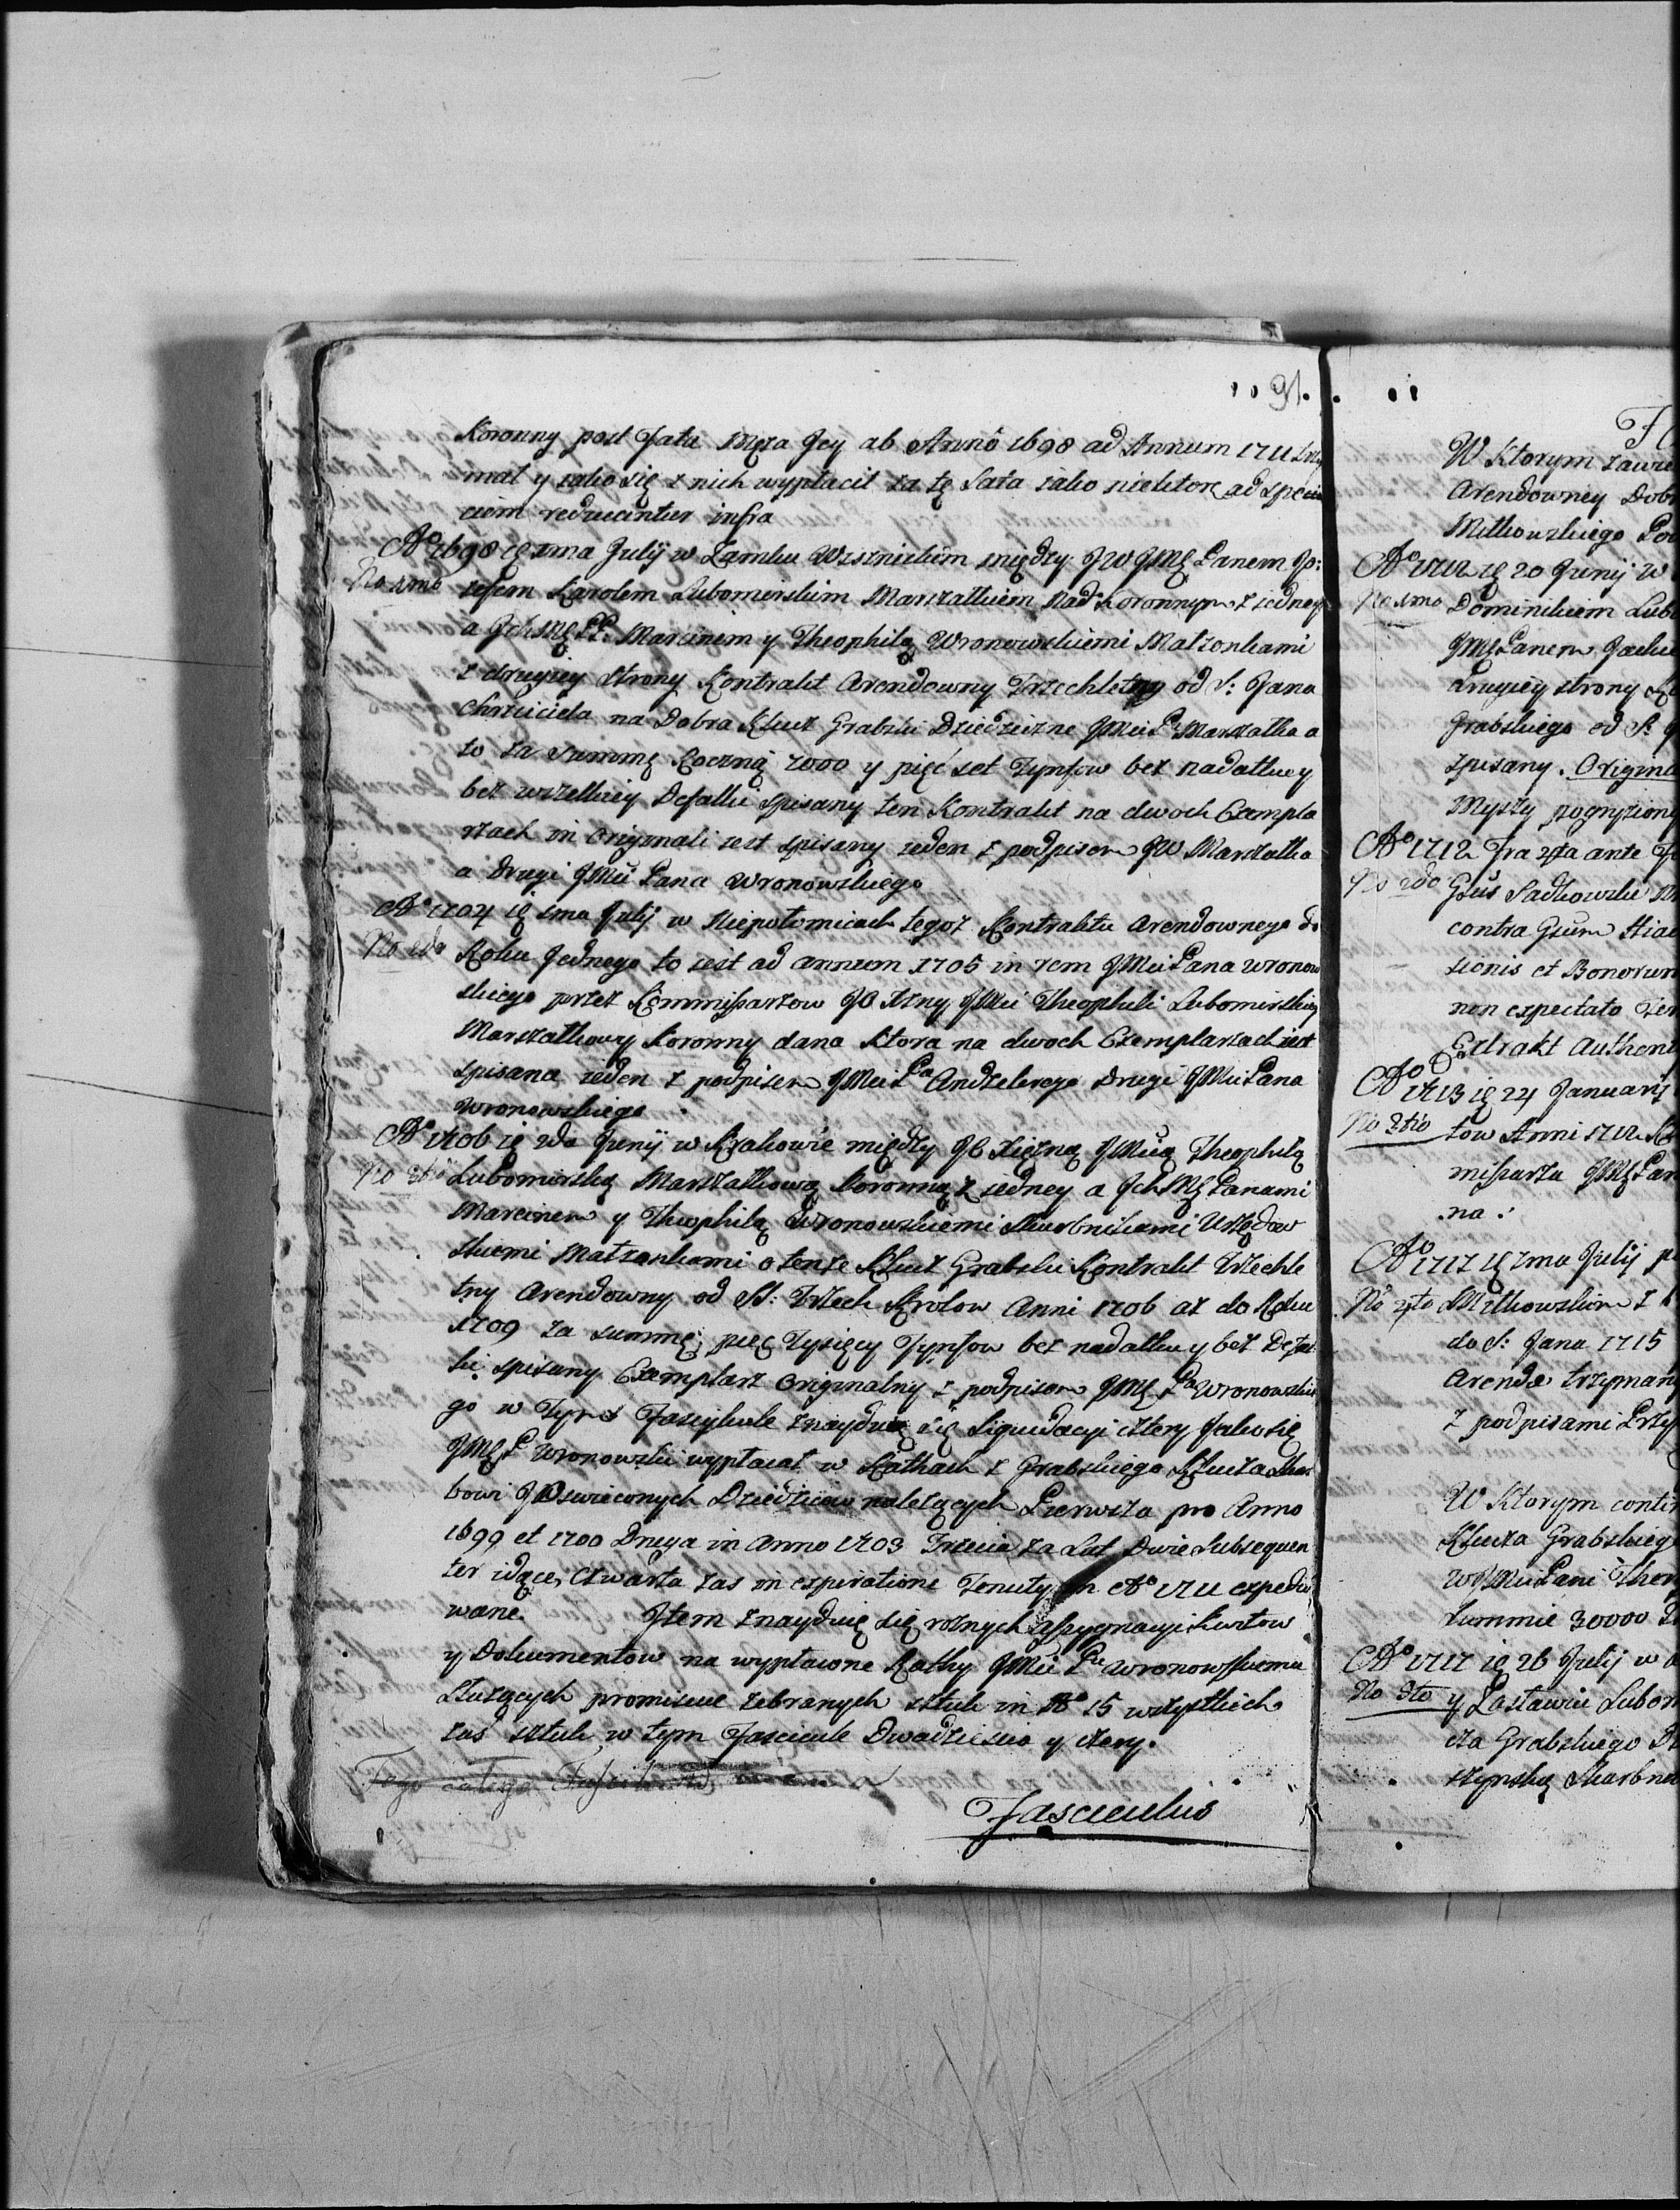 91.
Koronny post Fata Męża Jey ab Annô 1698 ad Annum 1711 trzy
mał y jako się z nich wypłacił za tę Lata jako niektore ad speci
ciem reducuntur infra
Aº 1698 ię 1ma Julij w Zamku Wisznickim między JW JMę Panem Jo:
No 1mo zefem Karolem Lubomirskim Marszałkiem Nadº Koronnym z jedney
a Ichmę PP. Marcinem y Theophilą Wronowskiemi Małzonkami
z drugiey strony Kontrakt Arendowny Trzechletny od S: Jana
Chrzciciela na Dobra Klucz Grabski Dziedziczne JMci Pª Marszałka a
to za Summę Roczną 7000 y pięć set Tynfow bez nadatku y
bez wszelkiey Defalki spisany ten Kontrakt na dwoch Exempla
rzach in Originali jest spisany jeden z podpisem JW Marszałka
a Drugi JMci Pana Wronowskiego
Aº 1704 ię 1ma Julij w Niepołomicach tegoż Kontraktu Arendownego do
No 2do Roku Jednego to jest ad annum 1705 in rem JMci Pana Wronow
skiego przez Kommissarzow JO Xzny JMci Theophili Lubomirskiey
Marszałkowy Koronny dana Ktora na dwoch Exemplarzach jest
spisana jeden z podpisem JMci Pª Andzelerego Drugi JMci Pana
Wronowskiego
Aº 1706 ię 2da Junij w Krakowie między JO Xiężną JMcią Theophilą
No 3tio Lubomirską Marszałkową Koronną z jedney a Ichmę Panami
Marcinem y Theophilą Wronowskiemi Skarbnikami Urzędow
skiemi Małzonkami o tenże Klucz Grabski Kontrakt Trzechle
tny Arendowny od SS: Trzech Krolow Anni 1706 az do Roku
1709 za summę pięc Tysięcy Tynfow bez nadatku y bez Defal
ki spisany Exemplarz Originalny z podpisem JMę Pª Wronowskie
go w Tymż Fascykule znayduię się Liquidacyi cztery Jako się
JMę P Wronowski wypłacał w Rathach z Grabskiego Klucza Skar
bowi JOswieconych Dziedzicow należących Pierwsza pro Anno
1699 et 1700 Druga in Anno 1703 Trzecia za Lat Dwie Subsequen
ter idące, Czwarta zas in expiratione Tenuty in Aº 1711 expedio
wane. Item znayduię się roznych assygnacyi kwitow
y Dokumentow na wypłacone Rathy JMci Pu Wronowskiemu
Służących promiscue zebranych sztuk in Nº 15 wszystkich
zaś sztuk w tym Fascicule Dwadziescia y cztery.
Tego całego
Fasciculus
W Ktorym zawie
Arendowney Dobr
Miłkowskiego Po
Aº 1712 ię 20 Junij w
No 1mo Dominikiem Lub
JMę Panem Jack
Drugiey strony K
Grabskiego od S: J
spisany. Origina
Myszy pogryziony
Aº 1712 Fra 2da ante F
No 2do Gsus Sadkowski
contra Gsum Hia
sionis et Bonorum
non expectato Ter
Extrakt Authen
Aº 1713 ię 24 Januarij
No 3tio tow Anni 1712
missarza JMę Pan
na.
Aº 1717 ię 1ma Julij
No 4to Miłkowskiem z
do S: Jana 1715
Arenda trzyman
z podpisami Przy
W Ktorym conti
Klucza Grabskieg
WJMci Pani Ther
Summie 30000
Aº 1717 ię 26 Julij w
No 5to y Zastawie Lubom
cza Grabskiego D
szynską Skarbni